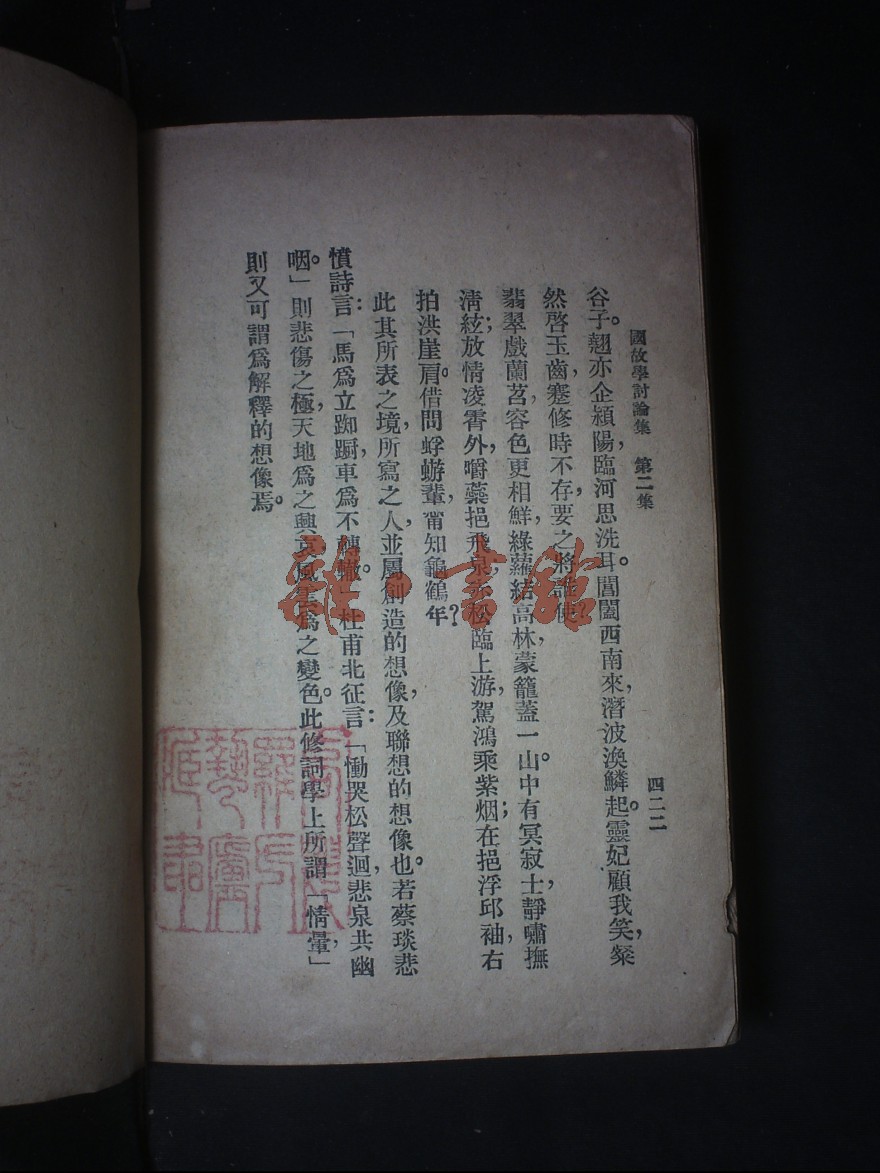 國故學討論集　第二集　四二二
谷子。翹亦企潁陽，臨河思洗耳。閶闔西南來，潛波渙鱗起。靈妃顧我笑，粲
然啓玉齒蹇修時不存，要之將誰使？
翡翠戲蘭苕容色更相鮮，綠蘿結高林，蒙籠蓋一山。中有冥寂士，靜嘯撫
清絃；放情凌霄外，嚼蘂挹飛泉，赤松臨上游，駕鴻乘紫烟；在挹浮邱袖，右
拍洪崖肩。借問蜉蝣輩，甯知龜鶴年？
此其所表之境，所寫之人，並屬創造的想像，及聯想的想像也。若蔡琰悲
憤詩言：「馬爲立踟躕，車爲不轉轍。」杜甫北征言：「慟哭松聲迴，悲泉共幽
咽。」則悲傷之極，天地爲之興哀，風雲爲之變色。此修詞學上所謂「情暈」，
則又可謂爲解釋的想像焉。